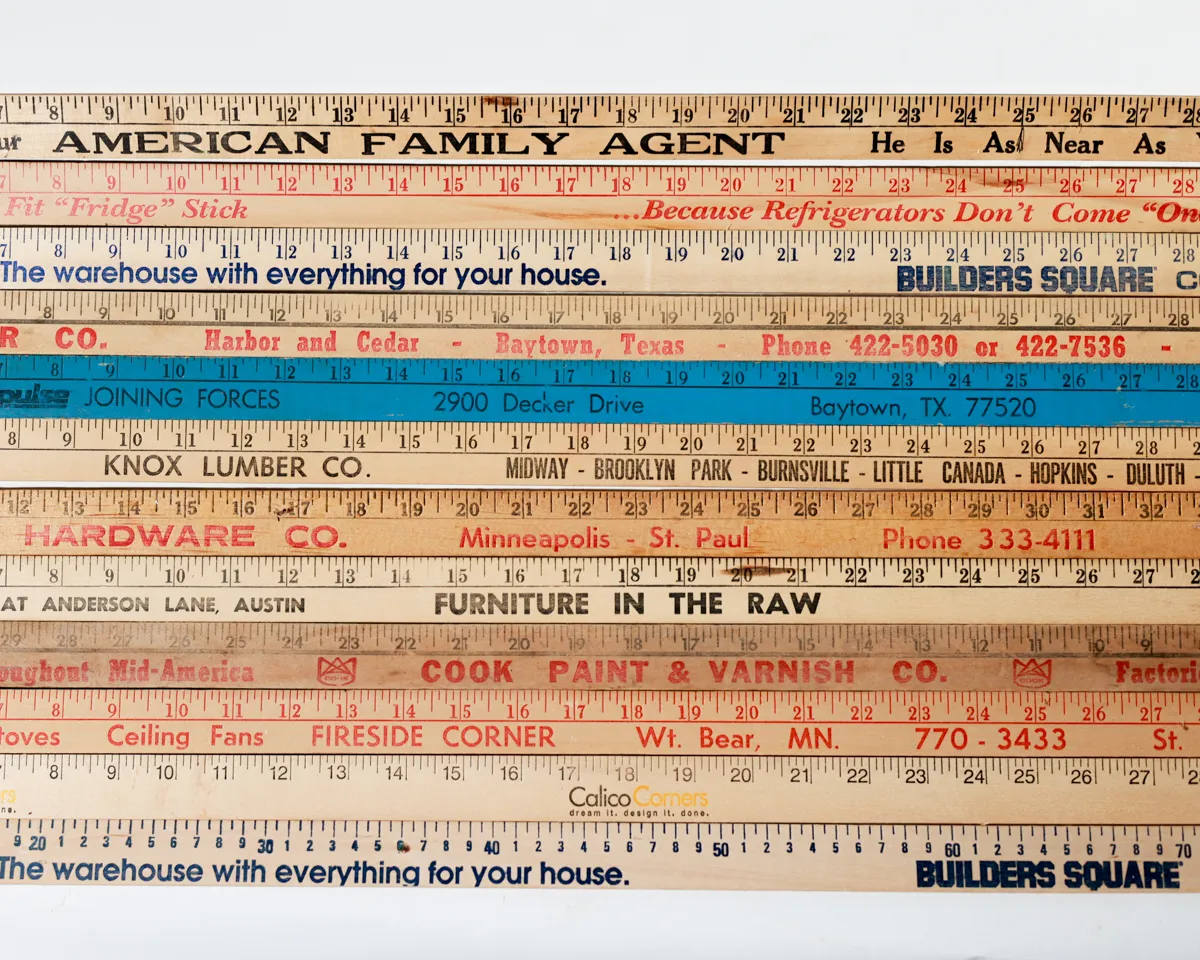 7 8 9 10 11 12 13 14 15 16 17 18 19 20 21 22 23 24 25 26 27 28
ur AMERICAN FAMILY AGENT He Is As Near As
7 8 9 10 11 12 13 14 15 16 17 18 19 20 21 22 23 24 25 26 27 28
Fit “Fridge” Stick ...Because Refrigerators Don't Come “On
7 8 9 10 11 12 13 14 15 16 17 18 19 20 21 22 23 24 25 26 27 28
The warehouse with everything for your house. BUILDERS SQUARE C
8 9 10 11 12 13 14 15 16 17 18 19 20 21 22 23 24 25 26 27 28
R CO. Harbor and Cedar - Baytown, Texas - Phone 422-5030 or 422-7536 -
7 8 9 10 11 12 13 14 15 16 17 18 19 20 21 22 23 24 25 26 27 28
pulse JOINING FORCES 2900 Decker Drive Baytown, TX. 77520
8 9 10 11 12 13 14 15 16 17 18 19 20 21 22 23 24 25 26 27 28
KNOX LUMBER CO. MIDWAY - BROOKLYN PARK - BURNSVILLE - LITTLE CANADA - HOPKINS - DULUTH -
12 13 14 15 16 17 18 19 20 21 22 23 24 25 26 27 28 29 30 31 32
HARDWARE CO. Minneapolis - St. Paul Phone 333-4111
7 8 9 10 11 12 13 14 15 16 17 18 19 20 21 22 23 24 25 26 27
AT ANDERSON LANE, AUSTIN FURNITURE IN THE RAW
29 28 27 26 25 24 23 22 21 20 19 18 17 16 15 14 13 12 11 10 9
oughout Mid-America COOK COOK PAINT & VARNISH CO. COOK Factori
8 9 10 11 12 13 14 15 16 17 18 19 20 21 22 23 24 25 26 27
toves Ceiling Fans FIRESIDE CORNER Wt. Bear, MN. 770 - 3433 St.
7 8 9 10 11 12 13 14 15 16 17 18 19 20 21 22 23 24 25 26 27 2
rs CalicoCorners
ne. dream it. design it. done.
9 20 1 2 3 4 5 6 7 8 9 30 1 2 3 4 5 6 7 8 9 40 1 2 3 4 5 6 7 8 9 50 1 2 3 4 5 6 7 8 9 60 1 2 3 4 5 6 7 8 9 70
The warehouse with everything for your house. BUILDERS SQUARE